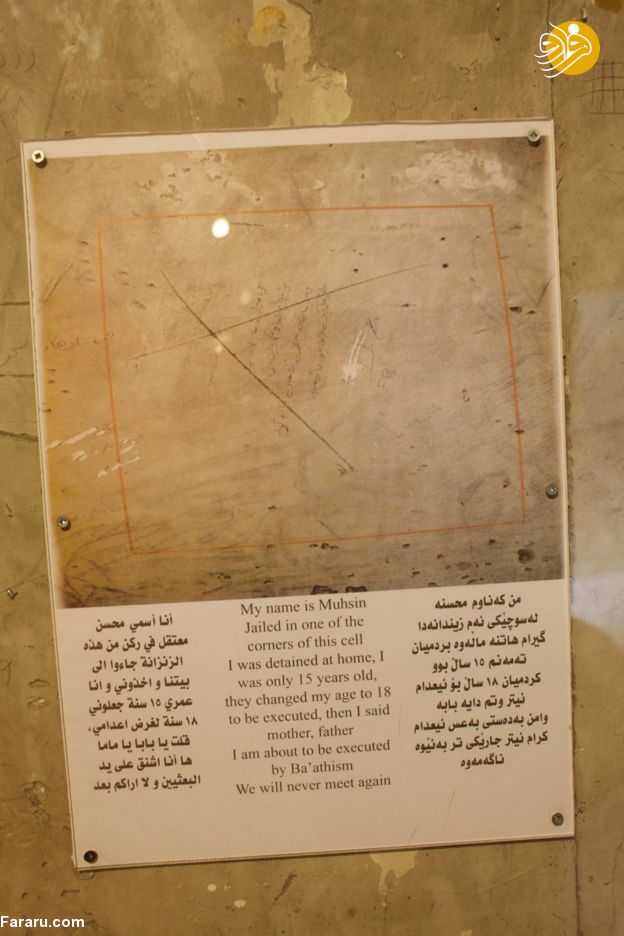 أنا أسمي محسن
معتقل في ركن من هذه
الزنزانة جاءوا الى
بيتنا و اخذوني و انا
عمري ١٥ سنة جعلوني
١٨ سنة لغرض اعدامي.
قلت يا بابا يا ماما
ها أنا اشنق على يد
البعثيين و لا اراكم بعد
My name is Muhsin
Jailed in one of the
corners of this cell
I was detained at home, I
was only 15 years old,
they changed my age to 18
to be executed, then I said
mother, father
I am about to be executed
by Ba'athism
We will never meet again
من كەناوم محسنه
لەسوچێکی ئەم زیندانەدا
گیرام هاتنه ماڵەوه بردمیان
تەمەنم ١٥ ساڵ بوو
کردمیان ١٨ ساڵ بۆ ئیعدام
ئیتر وتم دایه بابه
وامن بەدەستی بەعس ئیعدام
کرام ئیتر جارێکی تر بەئێوه
ناگەمەوه
Fararu.com